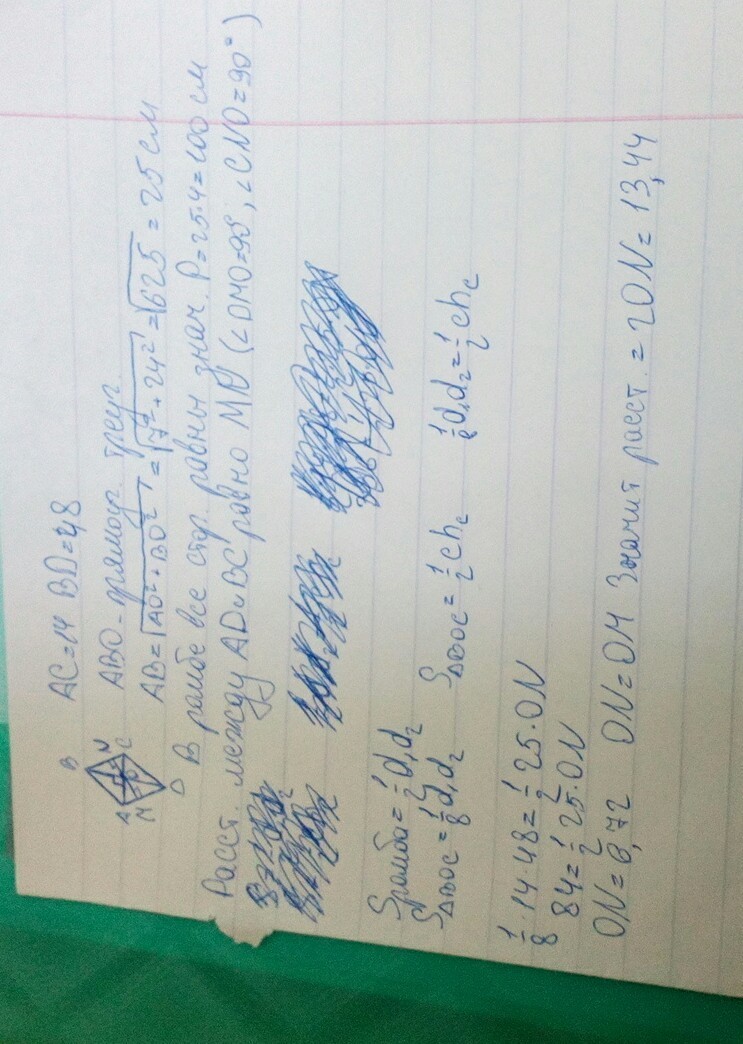 AC=14 BD=48
B
A
N
M
O
C
D
ABO - прямоуг. треуг.
AB=√AO²+BO² = √7²+24² = √625 = 25 см
В ромбе все стор. равны знач. P=25·4=100 см
Расст. между AD и BC равно MN (∠DMO=90°, ∠CNO=90°)
Sромба = 1/2 d₁d₂
SΔBOC = 1/8 d₁d₂ SΔBOC = 1/2 ch_c 1/8 d₁d₂ = 1/2 ch_c
1/8 · 14 · 48 = 1/2 25 · ON
84 = 1/2 25 · ON
ON = 6,72 ON = OM Значит расст. = 2ON = 13,44